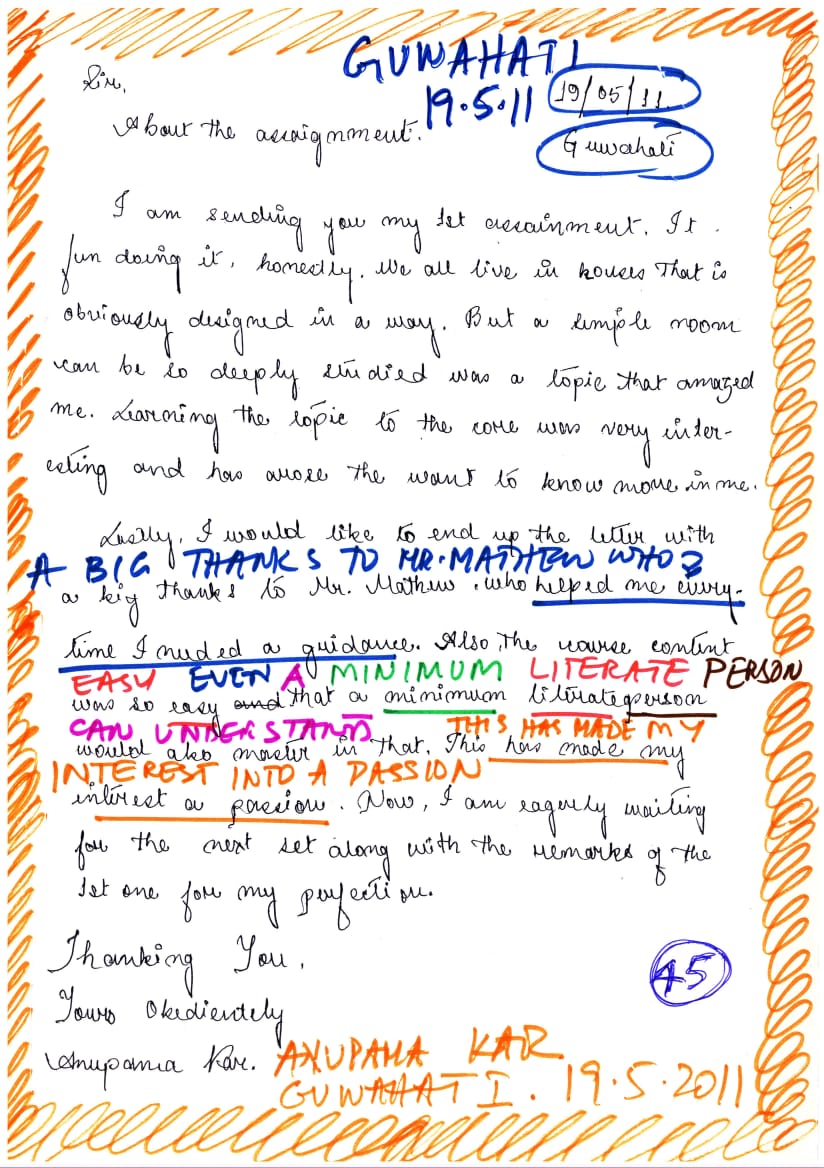 GUWAHATI
Sir,
19.5.11
19/05/11
About the assaignment.
Guwahati
I am sending you my 1st assainment. It
fun doing it, honestly. We all live in houses that is
obviously designed in a way. But a simple room
can be so deeply studied was a topic that amazed
me. Learning the topic to the core was very inter-
esting and has arose the want to know more in me.
Lastly, I would like to end up the letter with
A BIG THANKS TO MR. MATHEW WHO
a big thanks to Mr. Mathew, who helped me every-
time I needed a guidance. Also, the course content
EASY EVEN A MINIMUM LITERATE PERSON
was so easy and that a minimum literate person
CAN UNDERSTAND THIS HAS MADE MY
would also master in that. This has made my
INTEREST INTO A PASSION
interest a passion. Now, I am eagerly waiting
for the next set along with the remarks of the
1st one for my perfection.
Thanking You,
45
Yours Obedientely
Anupama Kar. ANUPAMA KAR
GUWAHATI. 19.5.2011